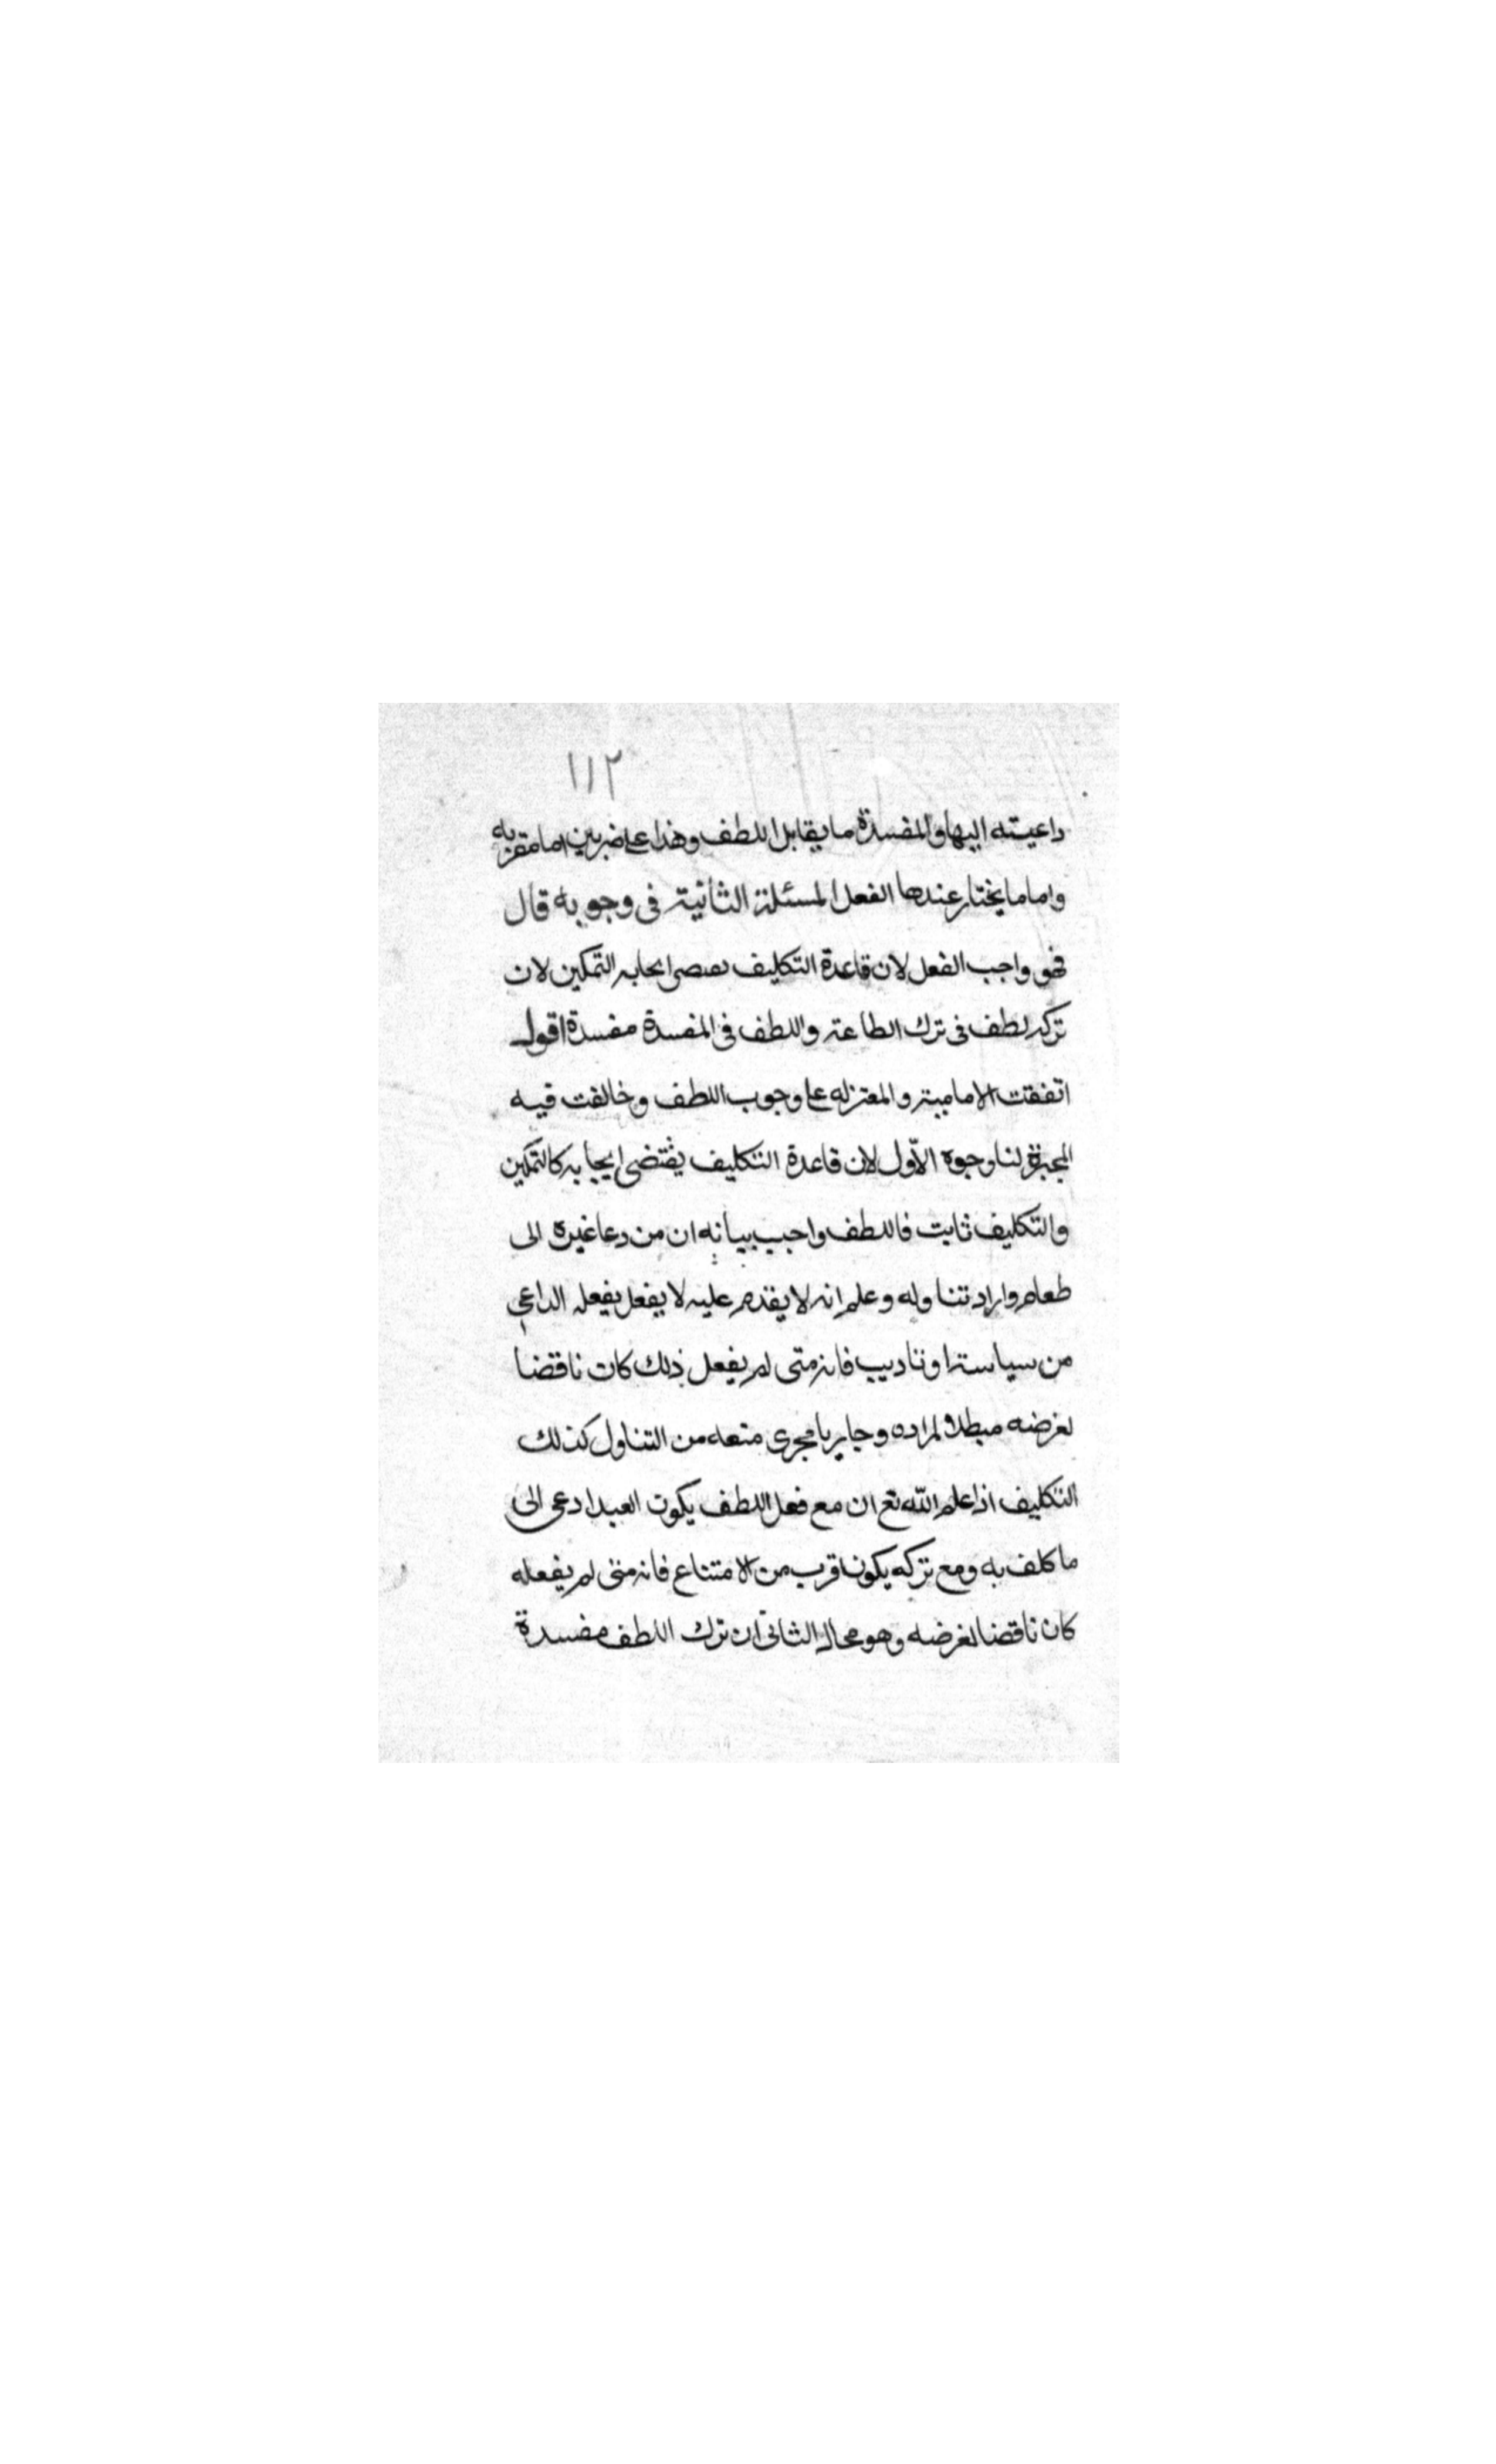 ١١٢
داعيته اليها والمفسدة ما يقابل اللطف وهذا على ضربين اما مقربه
واما ما يختار عندها الفعل المسئلة الثانية في وجوبه قال
فهو واجب الفعل لان قاعدة التكليف ايجابه التمكين لان
تركه لطف في ترك الطاعة واللطف في المفسدة مفسدة اقول
اتفقت الامامية والمعتزله على وجوب اللطف وخالفت فيه
المجبرة لنا وجوه الأول لان قاعدة التكليف يقتضى ايجابه كالتمكين
والتكليف ثابت فاللطف واجب بيانه ان من دعا غيره الى
طعام واراد تناوله وعلم انه لا يقدم عليه لا يفعل يفعله الداعي
من سياسة او تاديب فانه متى لم يفعل ذلك كان ناقضا
لغرضه مبطلا لمراده وجاريا مجرى منعه من التناول كذلك
التكليف اذا علم الله تع ان مع فعل اللطف يكون العبد ادعى الى
ما كلف به ومع تركه يكون اقرب من الامتناع فانه متى لم يفعله
كان ناقضا لغرضه وهو محال الثانى ان ترك اللطف مفسدة